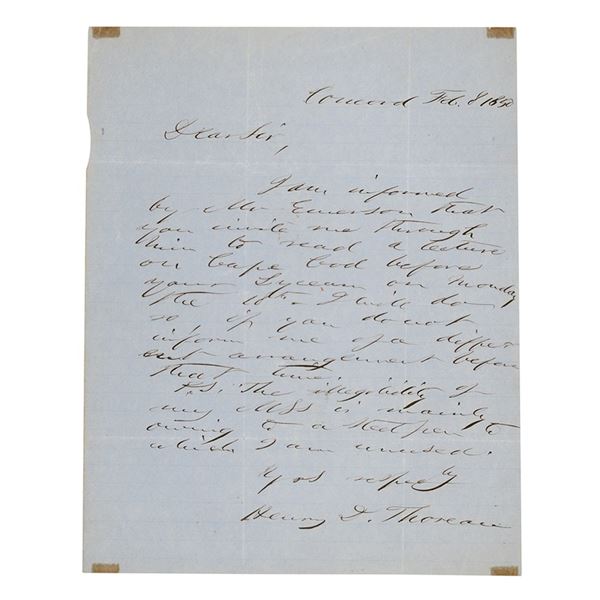 Concord Feb. 8 1850
Dear Sir,
I am informed
by Mr Emerson that
you invite me through
him to read a lecture
on Cape Cod before
your Lyceum on Monday
the 18th. I will do
so, if you do not
inform me of a differ
ent arrangement before
that time.
P.S. The illegibility of
my MSS is mainly
owing to a steel pen to
which I am unused.
Yrs respectly
Henry D. Thoreau